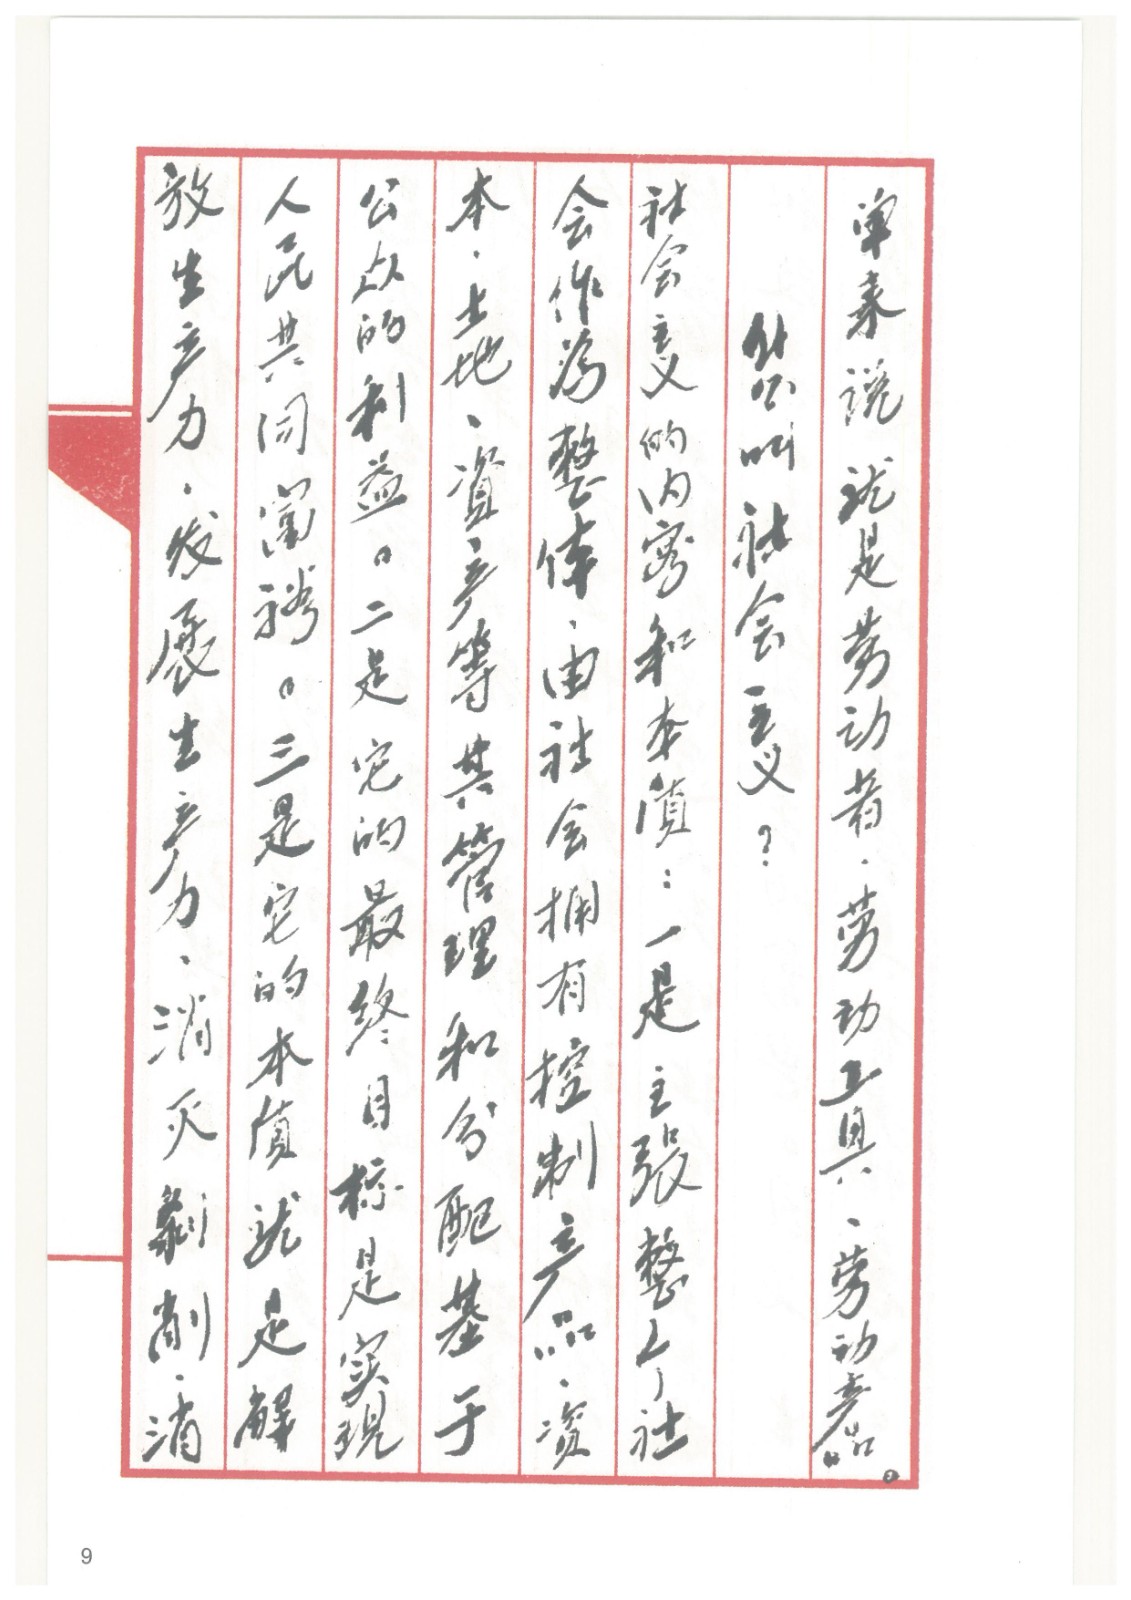 单来说就是劳动者、劳动工具、劳动产品。
什么叫社会主义?
社会主义的内容和本质:一是主张整个社
会作为整体、由社会拥有控制产品、资
本、土地、资产等其管理和分配基于
公众的利益。二是它的最终目标是实现
人民共同富裕。三是它的本质就是解
放生产力、发展生产力、消灭剥削、消
9